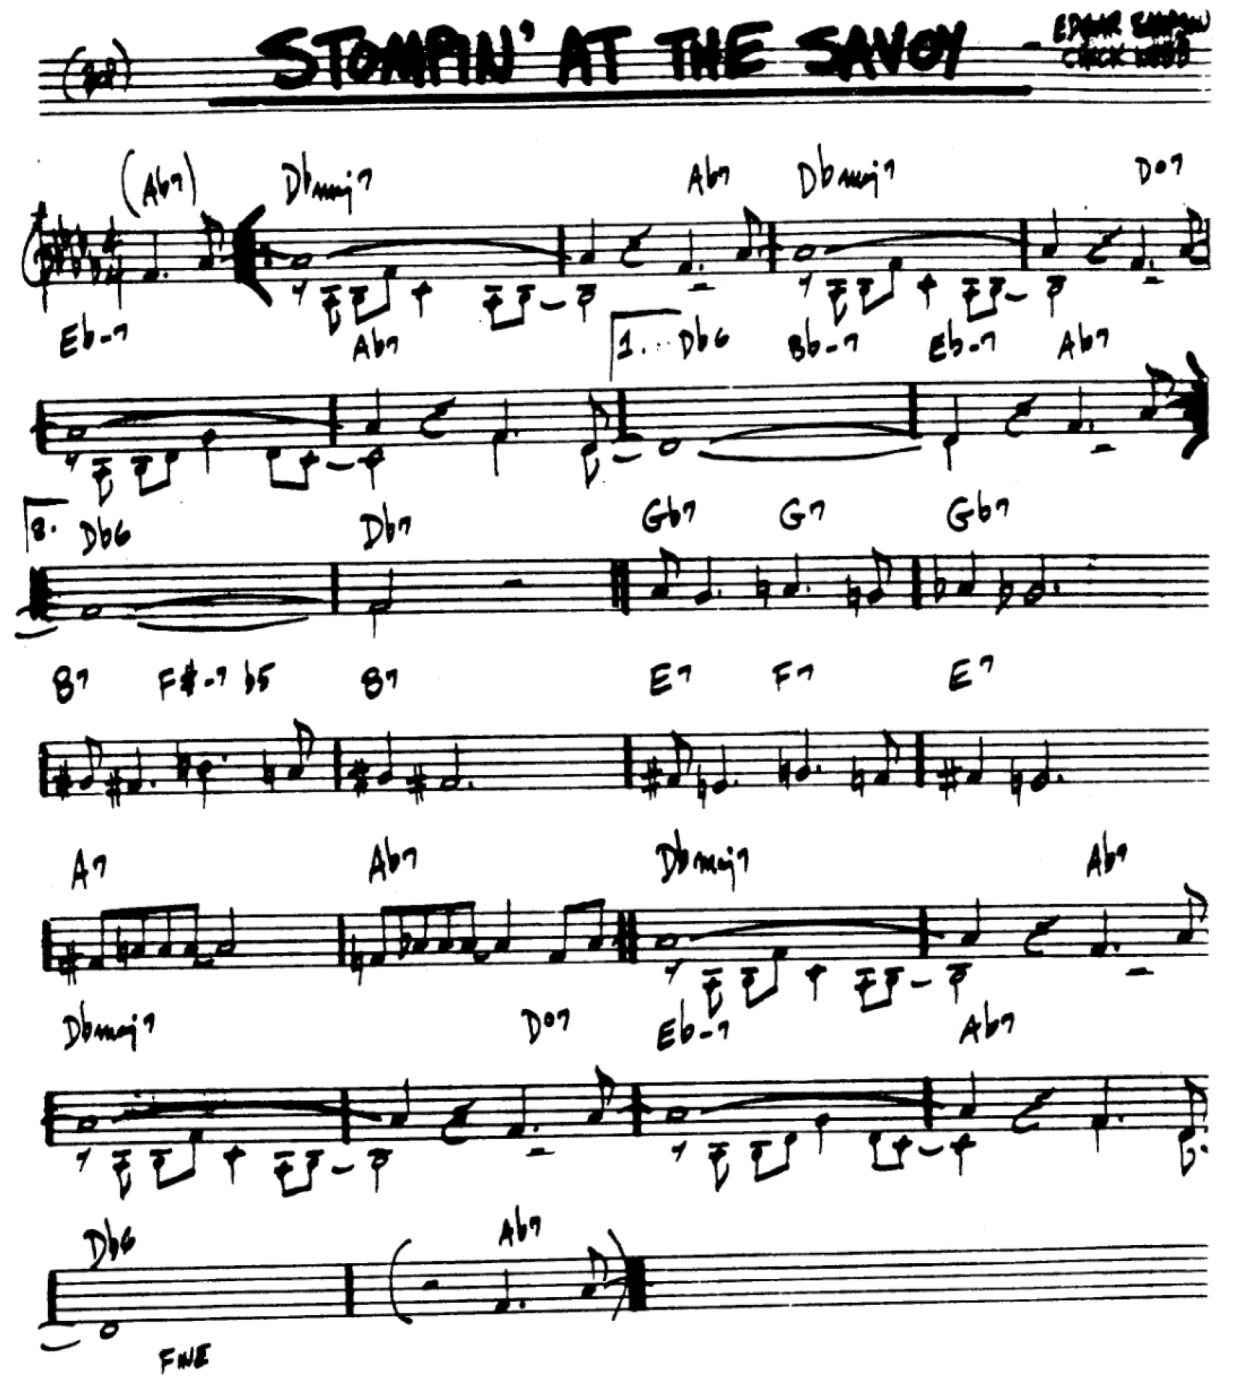 STOMPIN' AT THE SAVOY
EDGAR SAMPSON
CHICK WEBB
(Ab7) Dbmaj7 Ab7 Dbmaj7 Do7
Eb-7 Ab7 1. Db6 Bb-7 Eb-7 Ab7
2. Db6 Db7 Gb7 G7 Gb7
B7 F#-7 b5 B7 E7 F7 E7
A7 Ab7 Dbmaj7 Ab7
Dbmaj7 Do7 Eb-7 Ab7
Db6 Ab7
FINE